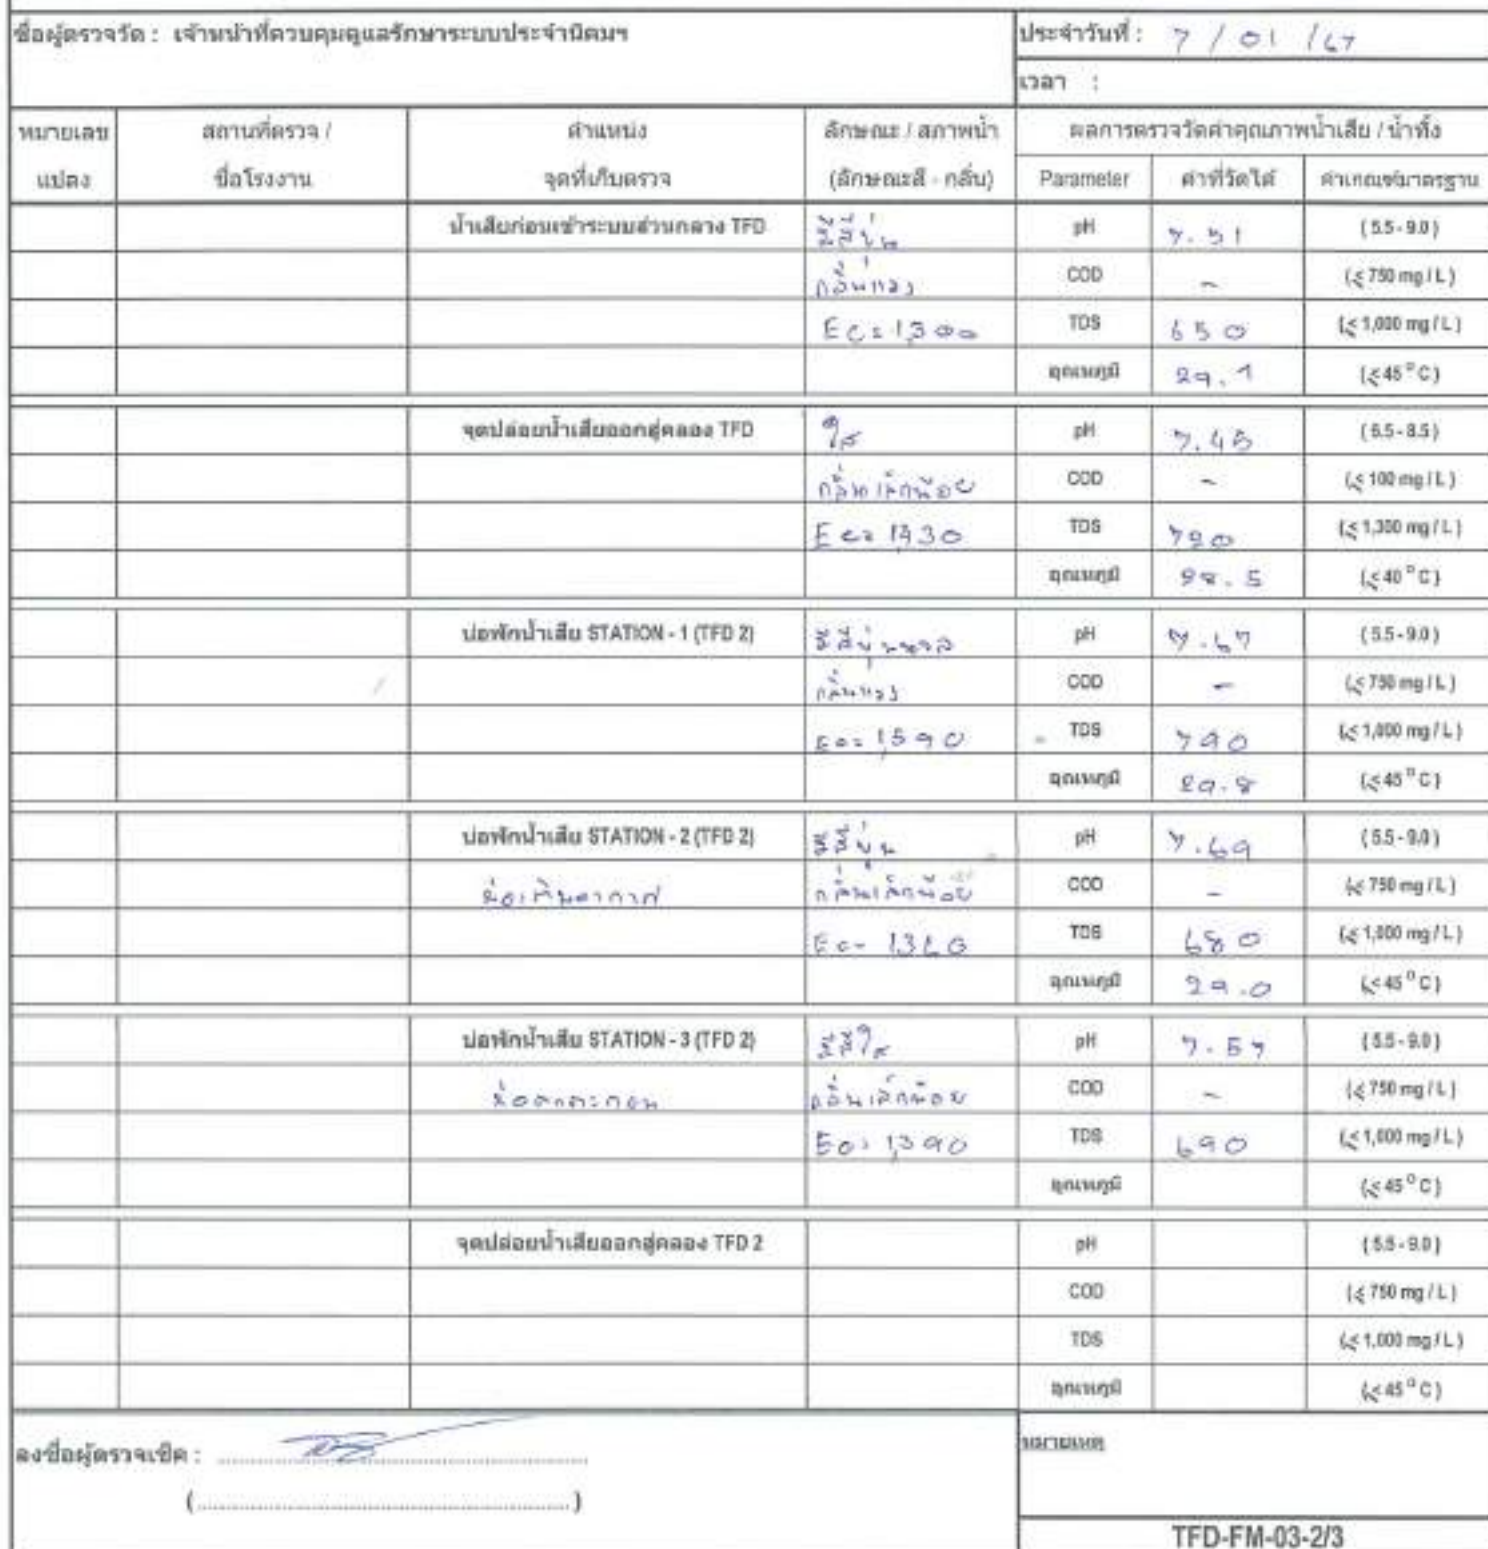 ชื่อผู้ตรวจวัด : เจ้าหน้าที่ควบคุมดูแลรักษาระบบประจำนิคมฯ ประจำวันที่ : 7 / 01 / 67
เวลา :
หมายเลข สถานที่ตรวจ / ตำแหน่ง ลักษณะ / สภาพน้ำ ผลการตรวจวัดค่าคุณภาพน้ำเสีย / น้ำทิ้ง
แปลง ชื่อโรงงาน จุดที่เก็บตรวจ (ลักษณะสี - กลิ่น) Parameter ค่าที่วัดได้ ค่าเกณฑ์มาตรฐาน
น้ำเสียก่อนเข้าระบบส่วนกลาง TFD มีสีขุ่น pH 7.51 (5.5 - 9.0)
กลิ่นแรง COD - (≤ 750 mg / L)
EC = 1,300 TDS 650 (≤ 1,000 mg / L)
อุณหภูมิ 29.1 (≤ 45 °C)
จุดปล่อยน้ำเสียออกสู่คลอง TFD ใส pH 7.45 (5.5 - 8.5)
กลิ่นเล็กน้อย COD - (≤ 100 mg / L)
Ec = 1,430 TDS 720 (≤ 1,300 mg / L)
อุณหภูมิ 28.5 (≤ 40 °C)
บ่อพักน้ำเสีย STATION - 1 (TFD 2) มีสีขุ่น pH 7.67 (5.5 - 9.0)
กลิ่นแรง COD - (≤ 750 mg / L)
Ec = 1,590 TDS 790 (≤ 1,000 mg / L)
อุณหภูมิ 29.8 (≤ 45 °C)
บ่อพักน้ำเสีย STATION - 2 (TFD 2) มีสีขุ่น pH 7.69 (5.5 - 9.0)
บ่อเติมอากาศ กลิ่นเล็กน้อย COD - (≤ 750 mg / L)
Ec = 1360 TDS 680 (≤ 1,000 mg / L)
อุณหภูมิ 29.0 (≤ 45 °C)
บ่อพักน้ำเสีย STATION - 3 (TFD 2) มีสีใส pH 7.57 (5.5 - 9.0)
บ่อตกตะกอน กลิ่นเล็กน้อย COD - (≤ 750 mg / L)
Ec = 1,390 TDS 690 (≤ 1,000 mg / L)
อุณหภูมิ (≤ 45 °C)
จุดปล่อยน้ำเสียออกสู่คลอง TFD 2 pH (5.5 - 9.0)
COD (≤ 750 mg / L)
TDS (≤ 1,000 mg / L)
อุณหภูมิ (≤ 45 °C)
ลงชื่อผู้ตรวจเช็ค : .................... หมายเหตุ
(....................)
TFD-FM-03-2/3